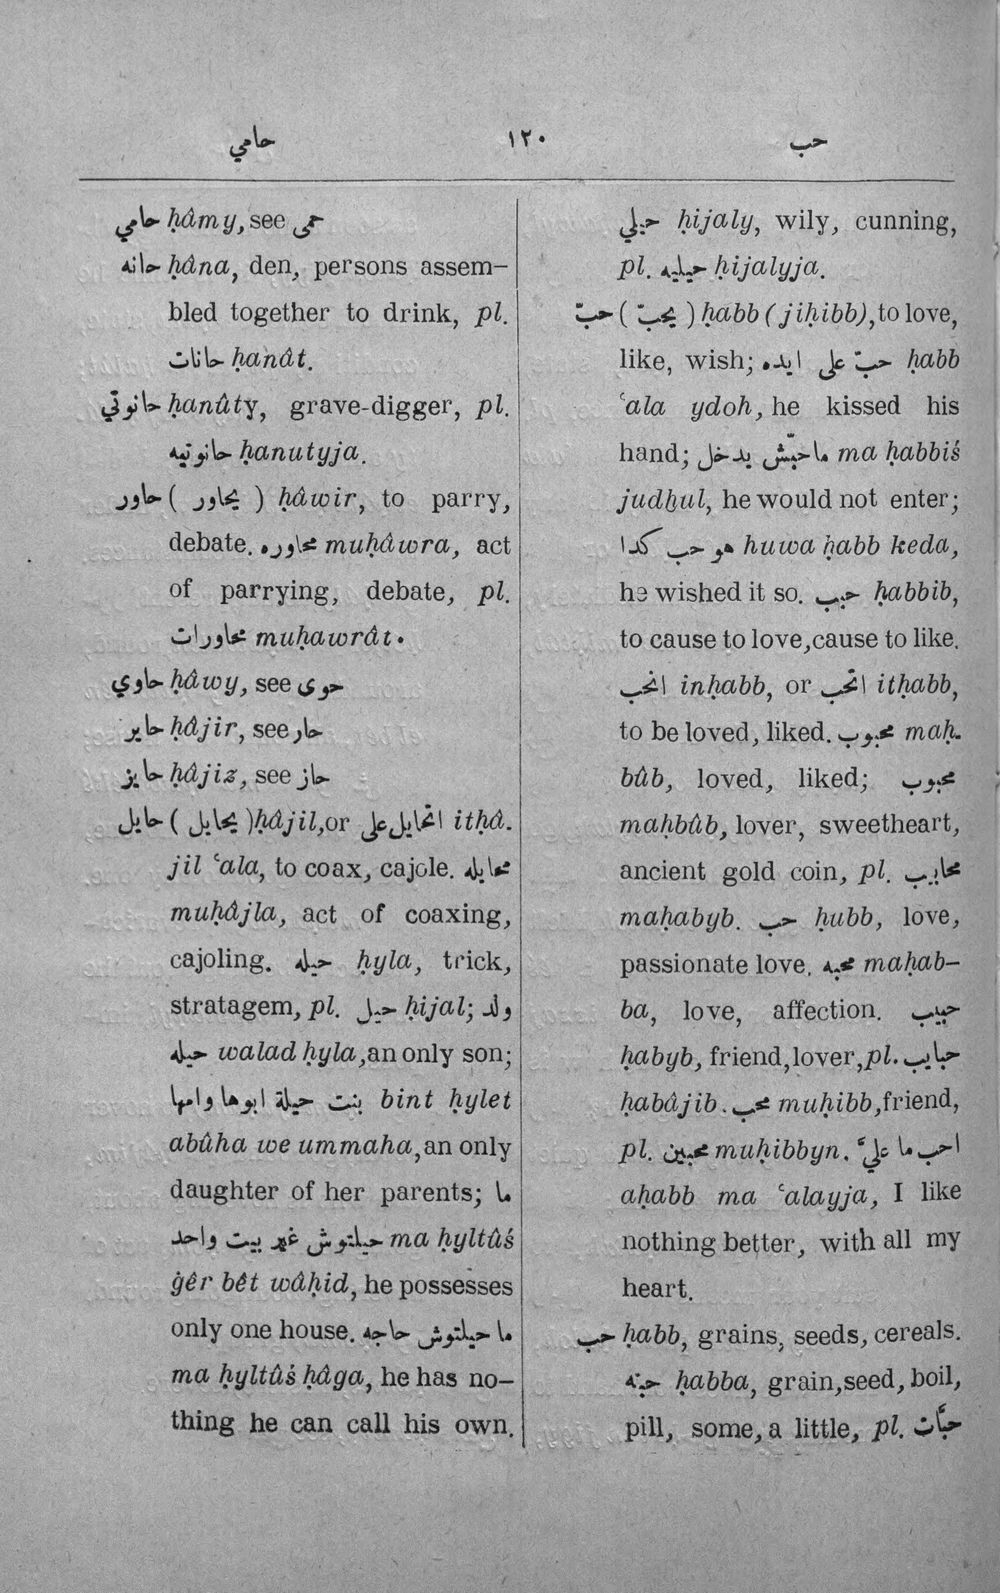 حامي ١٢٠ حب
حامي ḥâmy, see حمى
حانه ḥâna, den, persons assem-
bled together to drink, pl.
حانات ḥanât.
حانوتي ḥanûty, grave-digger, pl.
حانوتيه ḥanutyja.
حاور ( يحاور ) ḥâwir, to parry,
debate. محاوره muḥâwra, act
of parrying, debate, pl.
محاورات muḥawrât.
حاوي ḥâwy, see حوى
حاير ḥâjir, see حار
حايز ḥâjiz, see حاز
حايل ( يحايل ) ḥâjil, or اتحايل على itḥâ.
jil ʿala, to coax, cajole. محايله
muḥâjla, act of coaxing,
cajoling. حيله ḥyla, trick,
stratagem, pl. حيل ḥijal; ولد
حيله walad ḥyla, an only son;
بنت حيلة ابوها وامها bint ḥylet
abûha we ummaha, an only
daughter of her parents; ما
حيلتوش غير بيت واحد ma ḥyltûś
ġêr bêt wâḥid, he possesses
only one house. ما حيلتوش حاجه
ma ḥyltûś ḥâga, he has no-
thing he can call his own.
حيلي ḥijaly, wily, cunning,
pl. حيليه ḥijalyja.
حبّ ( يحبّ ) ḥabb (jiḥibb), to love,
like, wish; حبّ على ايده ḥabb
ʿala ydoh, he kissed his
hand; ماحبّش يدخل ma ḥabbiś
judḫul, he would not enter;
هو حب كدا huwa ḥabb keda,
he wished it so. حبب ḥabbib,
to cause to love, cause to like.
انحب inḥabb, or اتحب itḥabb,
to be loved, liked. محبوب maḥ.
bûb, loved, liked; محبوب
maḥbûb, lover, sweetheart,
ancient gold coin, pl. محابيب
maḥabyb. حب ḥubb, love,
passionate love. محبه maḥab-
ba, love, affection. حبيب
ḥabyb, friend, lover, pl. حبايب
ḥabâjib. محب muḥibb, friend,
pl. محبين muḥibbyn. احب ما عليّ
aḥabb ma ʿalayja, I like
nothing better, with all my
heart.
حب ḥabb, grains, seeds, cereals.
حبّه ḥabba, grain, seed, boil,
pill, some, a little, pl. حبّات